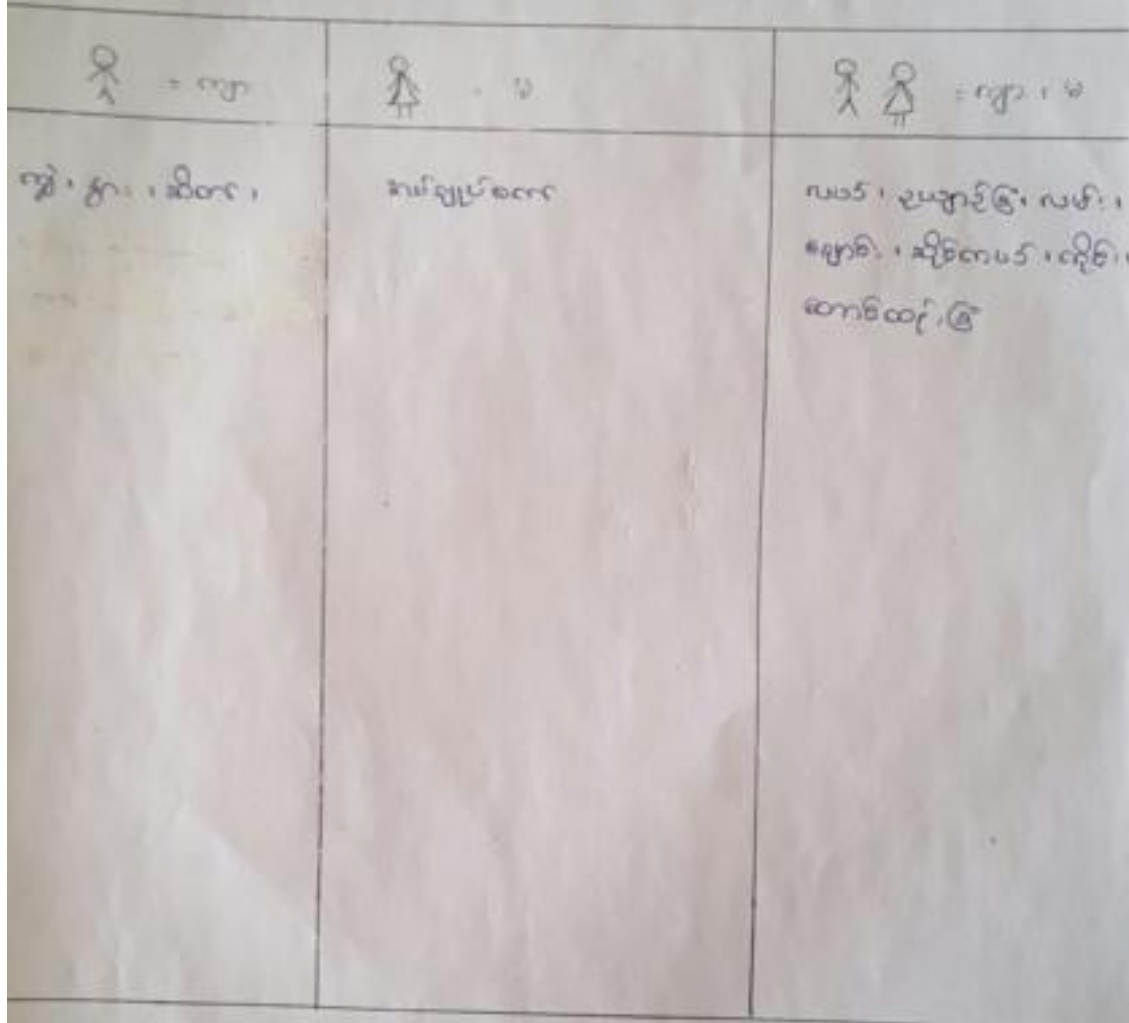 = ကျား
= မ
= ကျား ၊ မ
ကျွဲ ၊ နွား ၊ ဆိတ် ၊
အပ်ချုပ်စက်
လယ် ၊ ဥယျာဉ်ခြံ ၊ လမ်း ၊
ချောင်း ၊ ဆိုင်ကယ် ၊
တောင်ထည့် ၊ ခြံ